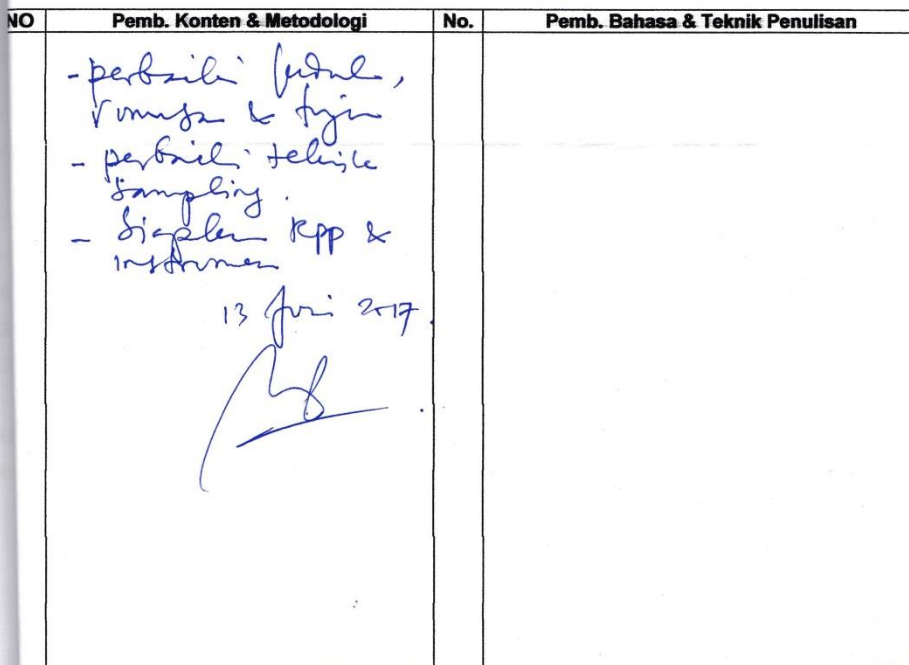 NO Pemb. Konten & Metodologi No. Pemb. Bahasa & Teknik Penulisan
- perbaiki judul,
rumusan & tujuan
- perbaiki teknik
sampling.
- Siapkan RPP &
instrumen
13 Juni 2017